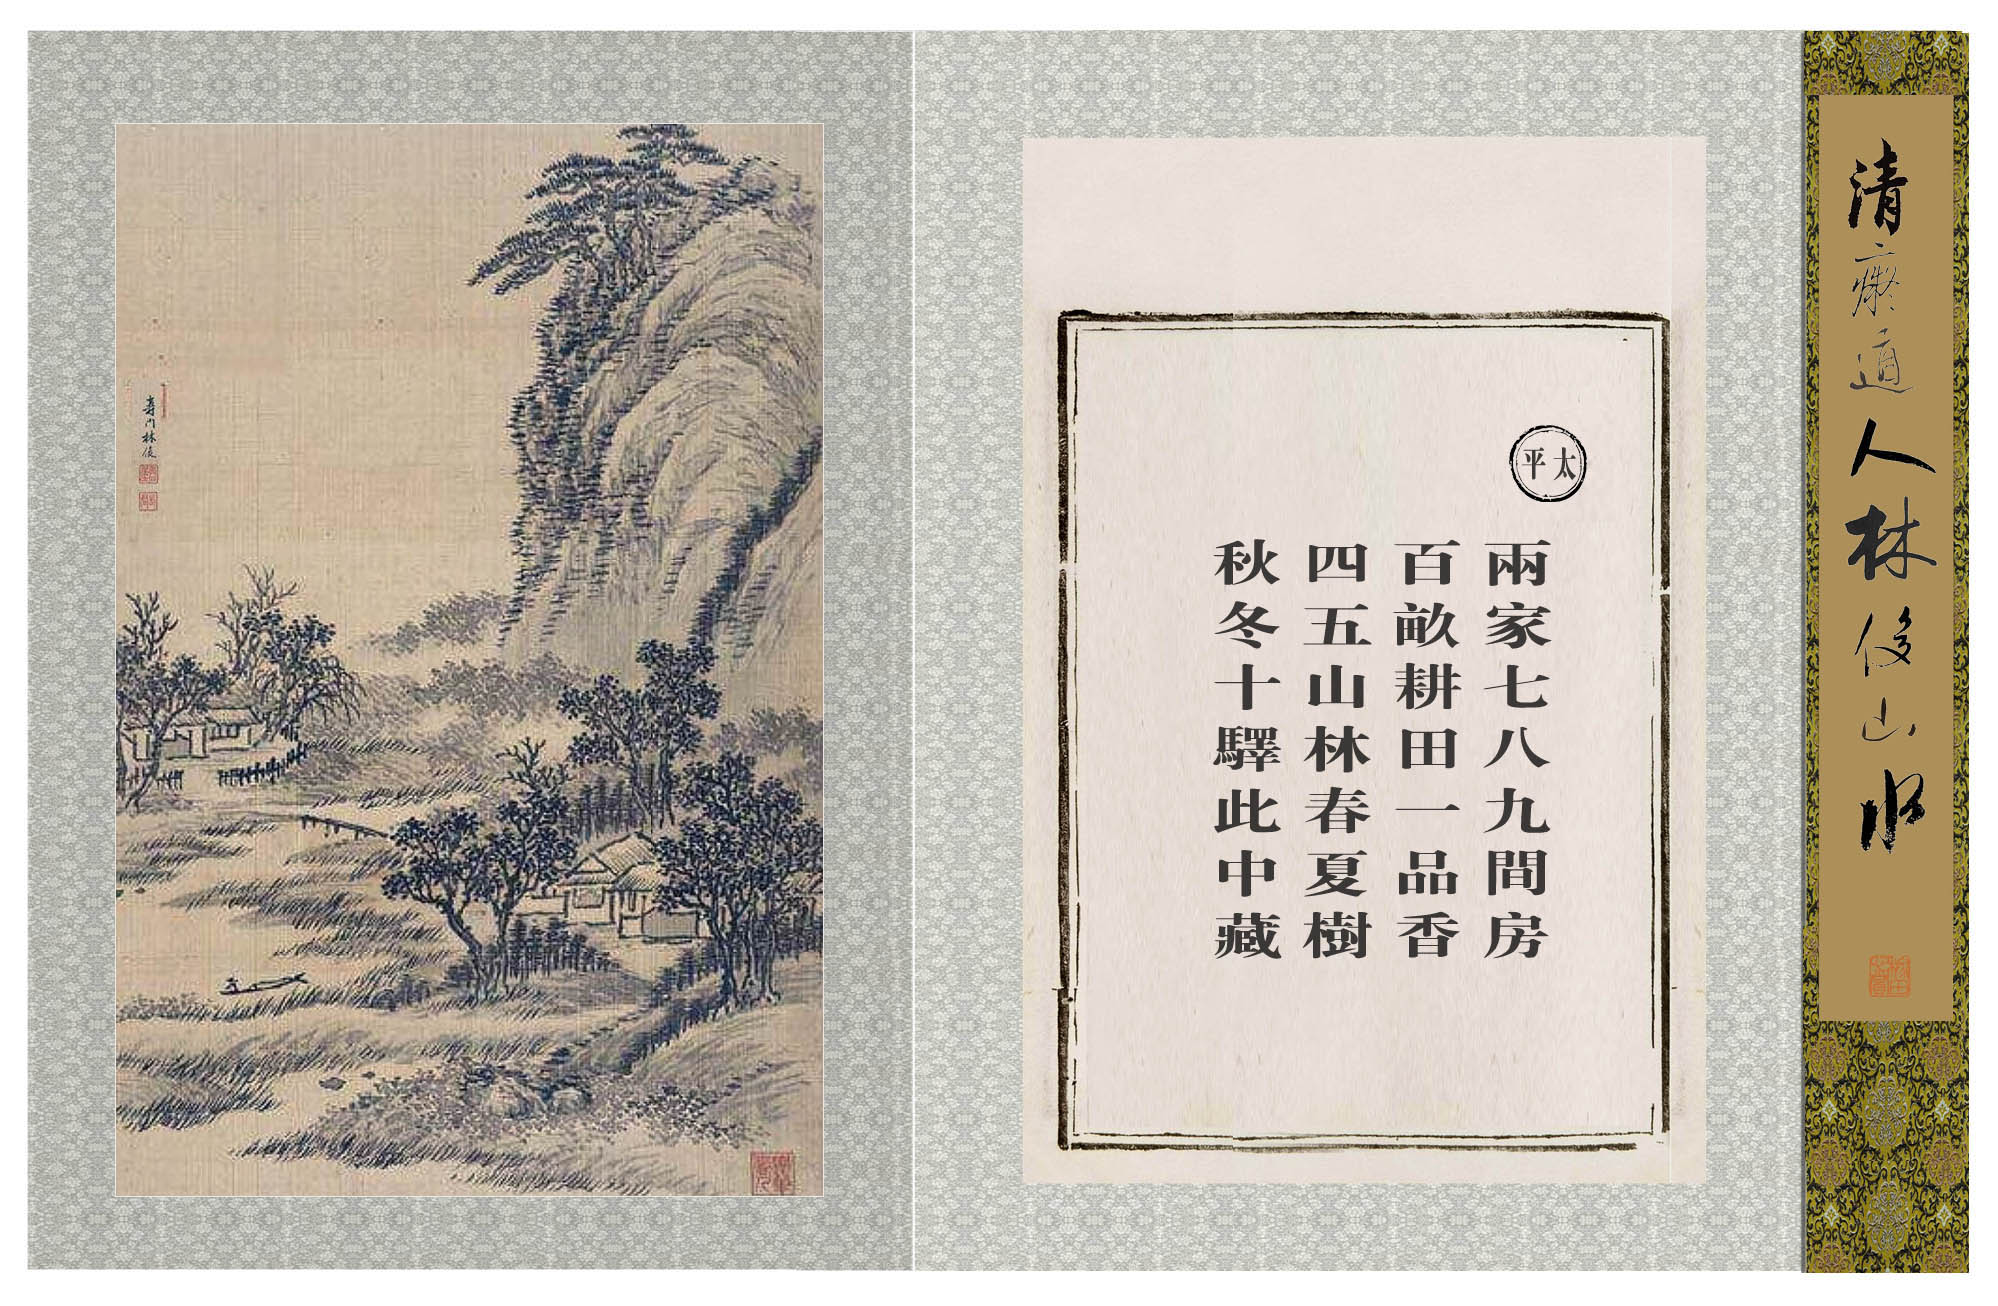 清癡道人林俊山水
太平
兩家七八九間房
百畝耕田一品香
四五山林春夏樹
秋冬十驛此中藏
壽門林俊